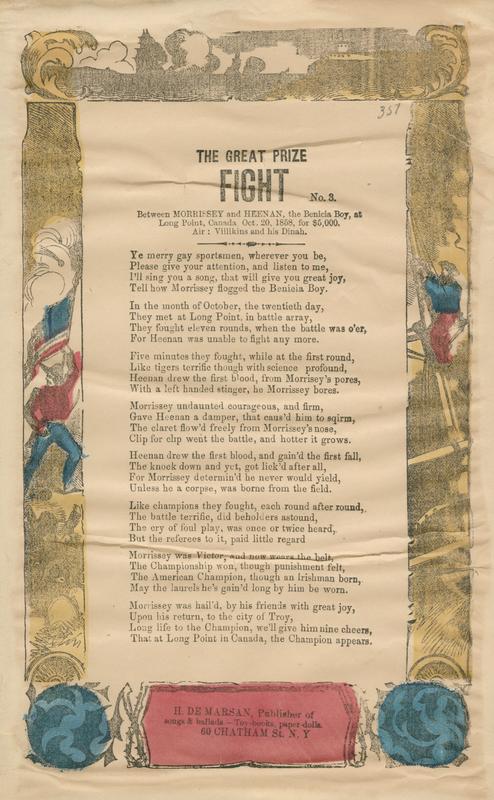 357
THE GREAT PRIZE
FIGHT No. 3.
Between MORRISSEY and HEENAN, the Benicia Boy, at
Long Point, Canada Oct. 20, 1858, for $5,000.
Air: Villikins and his Dinah.
Ye merry gay sportsmen, wherever you be,
Please give your attention, and listen to me,
I'll sing you a song, that will give you great joy,
Tell how Morrissey flogged the Benicia Boy.
In the month of October, the twentieth day,
They met at Long Point, in battle array,
They fought eleven rounds, when the battle was o'er,
For Heenan was unable to fight any more.
Five minutes they fought, while at the first round,
Like tigers terrific though with science profound,
Heenan drew the first blood, from Morrisey's pores,
With a left handed stinger, he Morrissey bores.
Morrissey undaunted courageous, and firm,
Gave Heenan a damper, that caus'd him to sqirm,
The claret flow'd freely from Morrissey's nose,
Clip for clip went the battle, and hotter it grows.
Heenan drew the first blood, and gain'd the first fall,
The knock down and yet, got lick'd after all,
For Morrissey determin'd he never would yield,
Unless he a corpse, was borne from the field.
Like champions they fought, each round after round,
The battle terrific, did beholders astound,
The cry of foul play, was once or twice heard,
But the referees to it, paid little regard
Morrissey was Victor, and now wears the belt,
The Championship won, though punishment felt,
The American Champion, though an Irishman born,
May the laurels he's gain'd long by him be worn.
Morrissey was hail'd, by his friends with great joy,
Upon his return, to the city of Troy,
Long life to the Champion, we'll give him nine cheers,
That at Long Point in Canada, the Champion appears.
H. DE MARSAN, Publisher of
songs & ballads — Toy-books, paper-dolls.
60 CHATHAM St. N. Y